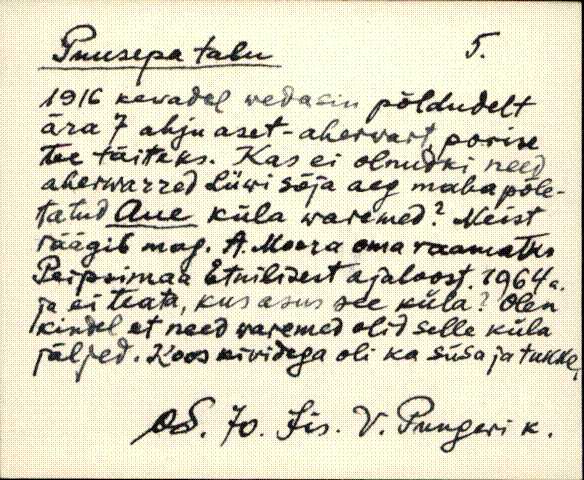 Puusepa talu 5.
1916 kevadel wedasin põldudelt
ära 7 ahju aset-aherwart, porise
tee täiteks. Kas ei olnudki need
aherwarred Liiwi sõja aeg mahapõle-
tatud Aue küla waremed? Neist
räägib mag. A. Moora oma raamatus
Peipsimaa Etnilisest ajaloost. 1964 a.
ja ei teata, kus asus see küla? Olen
kindel et need waremed olid selle küla
jäljed. Koos kividega oli ka süsa ja tukke,
V. Pungeri k.